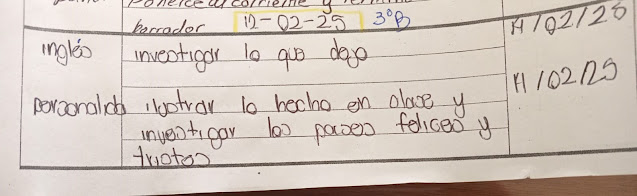 Ponerse al corriente y
borrador 12-02-25 3°B
11/02/25
inglés investigar lo que dejo
personalido ilustrar lo hecho en clase y 11/02/25
investigar los paises felices y
tristes